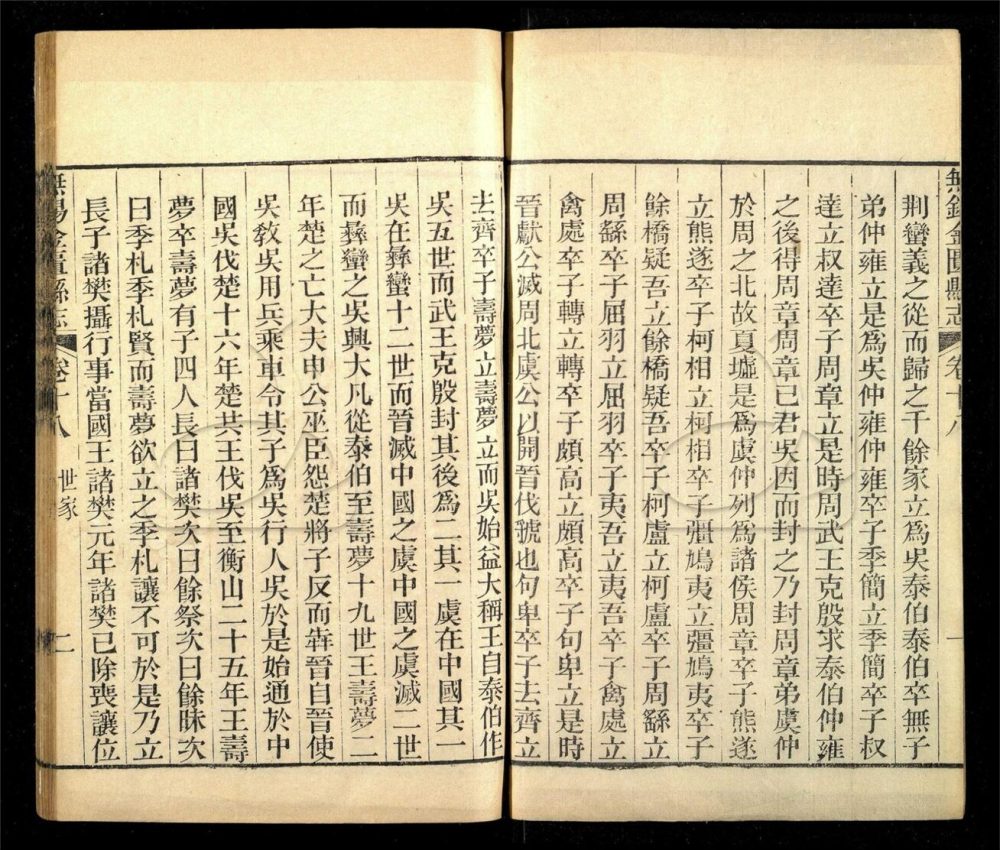 無錫金匱縣志 卷十八 一
荆蠻義之從而歸之千餘家立爲吳泰伯泰伯卒無子
弟仲雍立是爲吳仲雍仲雍卒子季簡立季簡卒子叔
達立叔達卒子周章立是時周武王克殷求泰伯仲雍
之後得周章周章已君吳因而封之乃封周章弟虞仲
於周之北故夏墟是爲虞仲列爲諸侯周章卒子熊遂
立熊遂卒子柯相立柯相卒子彊鳩夷立彊鳩夷卒子
餘橋疑吾立餘橋疑吾卒子柯盧立柯盧卒子周繇立
周繇卒子屈羽立屈羽卒子夷吾立夷吾卒子禽處立
禽處卒子轉立轉卒子頗高立頗高卒子句卑立是時
晉獻公滅周北虞公以開晉伐虢也句卑卒子去齊立
去齊卒子壽夢立壽夢立而吳始益大稱王自泰伯作
吳五世而武王克殷封其後爲二其一虞在中國其一
吳在彝蠻十二世而晉滅中國之虞中國之虞滅二世
而彝蠻之吳興大凡從泰伯至壽夢十九世王壽夢二
年楚之亡大夫申公巫臣怨楚將子反而犇晉自晉使
吳敎吳用兵乘車令其子爲吳行人吳於是始通於中
國吳伐楚十六年楚共王伐吳至衡山二十五年王壽
夢卒壽夢有子四人長曰諸樊次曰餘祭次曰餘眛次
曰季札季札賢而壽夢欲立之季札讓不可於是乃立
長子諸樊攝行事當國王諸樊元年諸樊已除喪讓位
無錫金匱縣志 卷十八 世家 二